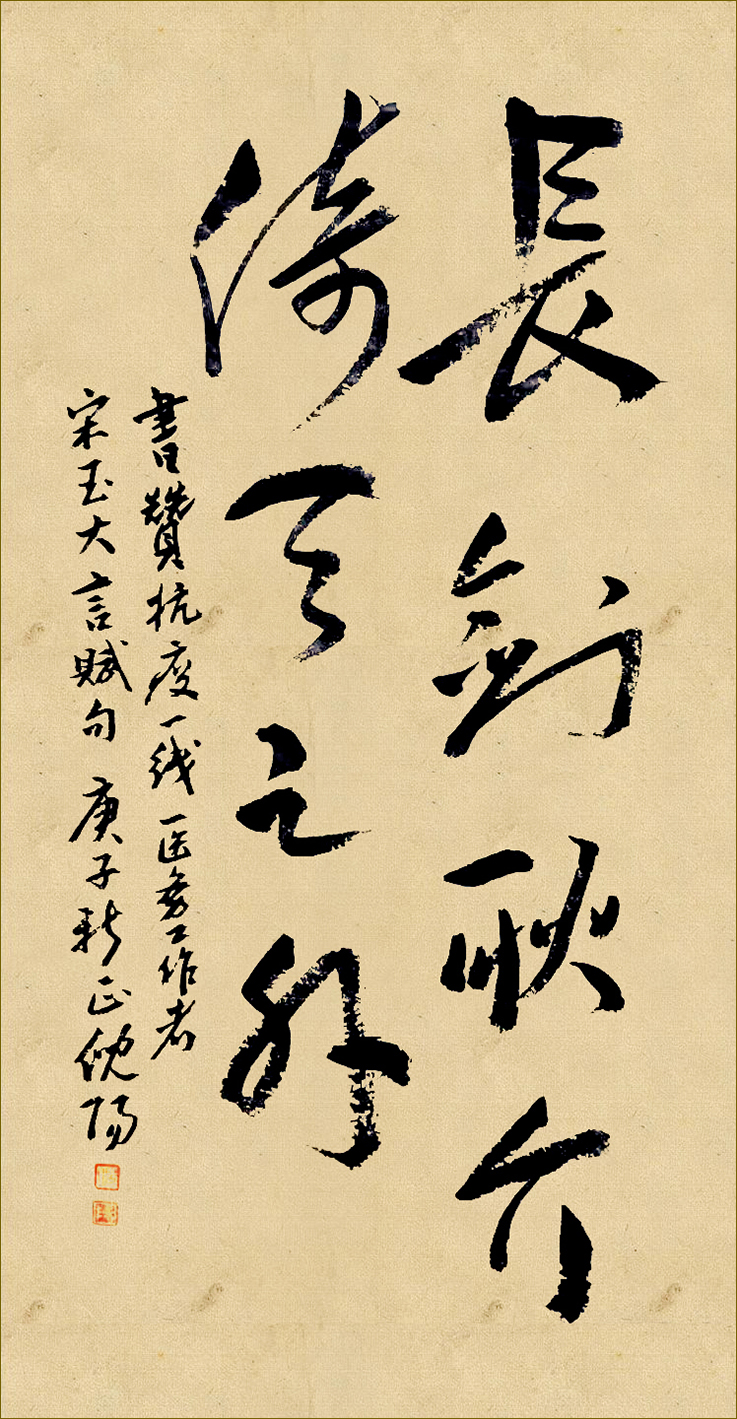 長剑耿介
倚天之外
書贊抗疫一线医务工作者
宋玉大言賦句 庚子新正 倪陽